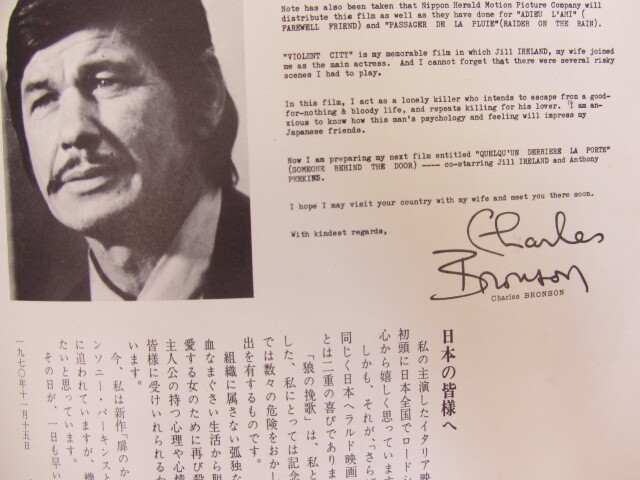 Note has also been taken that Nippon Herald Motion Picture Company will
distribute this film as well as they have done for "ADIEU L'AMI" (
FAREWELL FRIEND) and "PASSAGER DE LA PLUIE"(RAIDER ON THE RAIN).
"VIOLENT CITY" is my memorable film in which Jill IRELAND, my wife joined
me as the main actress. And I cannot forget that there were several risky
scenes I had to play.
In this film, I act as a lonely killer who intends to escape from a good-
for-nothing & bloody life, and repeats killing for his lover. I am an-
xious to know how this man's psychology and feeling will impress my
Japanese friends.
Now I am preparing my next film entitled "QUELQU'UN DERRIERE LA PORTE"
(SOMEONE BEHIND THE DOOR) ---- co-starring Jill IRELAND and Anthony
PERKINS.
I hope I may visit your country with my wife and meet you there soon.
With kindest regards,
Charles
Bronson
Charles BRONSON
日本の皆様へ
私の主演したイタリア映
初頭に日本全国でロードシ
心から嬉しく思っています
しかも、それが、「さらば
同じく日本ヘラルド映画
とは二重の喜びでありま
「狼の挽歌」は、私と
した、私にとっては記念
では数々の危険をおかし
出を有するものです。
組織に属さない孤独な
血なまぐさい生活から脱
愛する女のために再び殺
主人公の持つ心理や心情
皆様に受けいれられるか
います。
今、私は新作「扉のか
ンソニー・パーキンスと
に追われていますが、機
たいと思っています。
その日が、一日も早い
一九七〇年十一月十五日